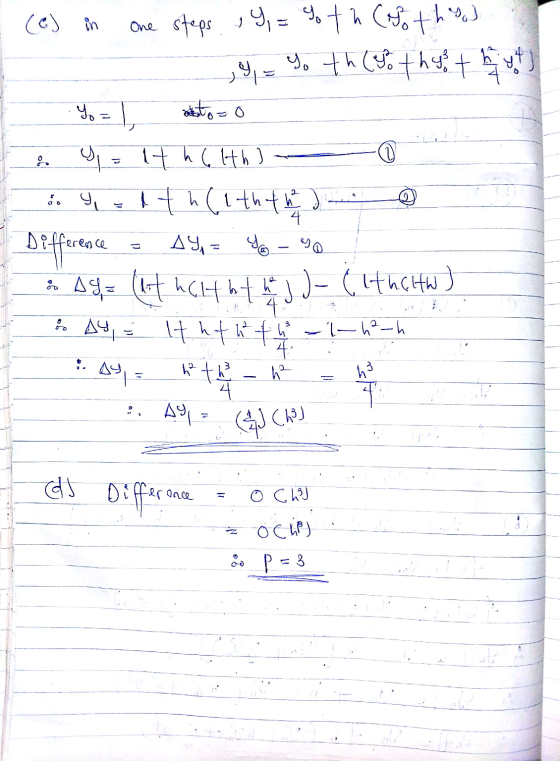 (c) in one steps , y₁ = y₀ + h (y₀² + h y₀³)
, y₁ = y₀ + h (y₀² + h y₀³ + h²/4 y₀⁴)
y₀ = 1, t₀ = 0
∴ y₁ = 1 + h (1+h) ——— ①
∴ y₁ = 1 + h (1 + h + h²/4) ——— ②
Difference = Δy₁ = y② - y①
∴ Δy₁ = (1 + h(1 + h + h²/4)) - (1 + h(1+h))
∴ Δy₁ = 1 + h + h² + h³/4 - 1 - h² - h
∴ Δy₁ = h² + h³/4 - h² = h³/4
∴ Δy₁ = (1/4) (h³)
(d) Difference = O(h³)
= O(hᵖ)
∴ p = 3